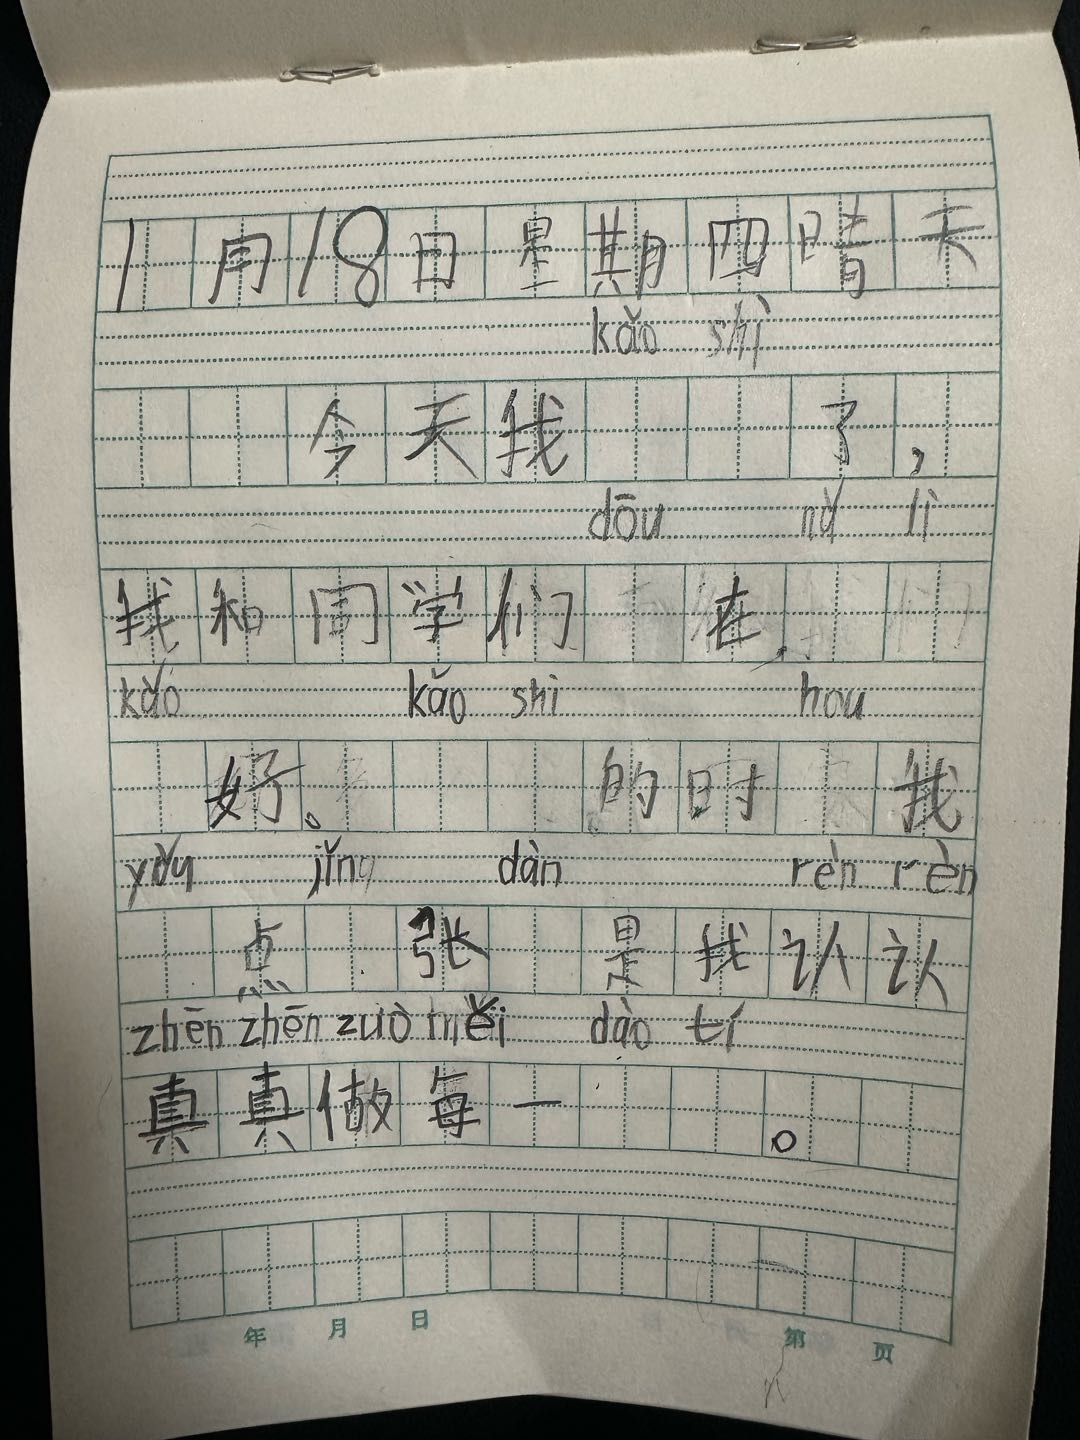 1月18日星期四晴天
kǎo shì
今天我 了,
dōu nǔ lì
我和同学们 在
kǎo kǎo shì hou
好。 的时 我
yǒu jǐng dàn rèn rèn
点 张 是我认认
zhēn zhēn zuò měi dào tí
真真做每一 。
年 月 日 第 页